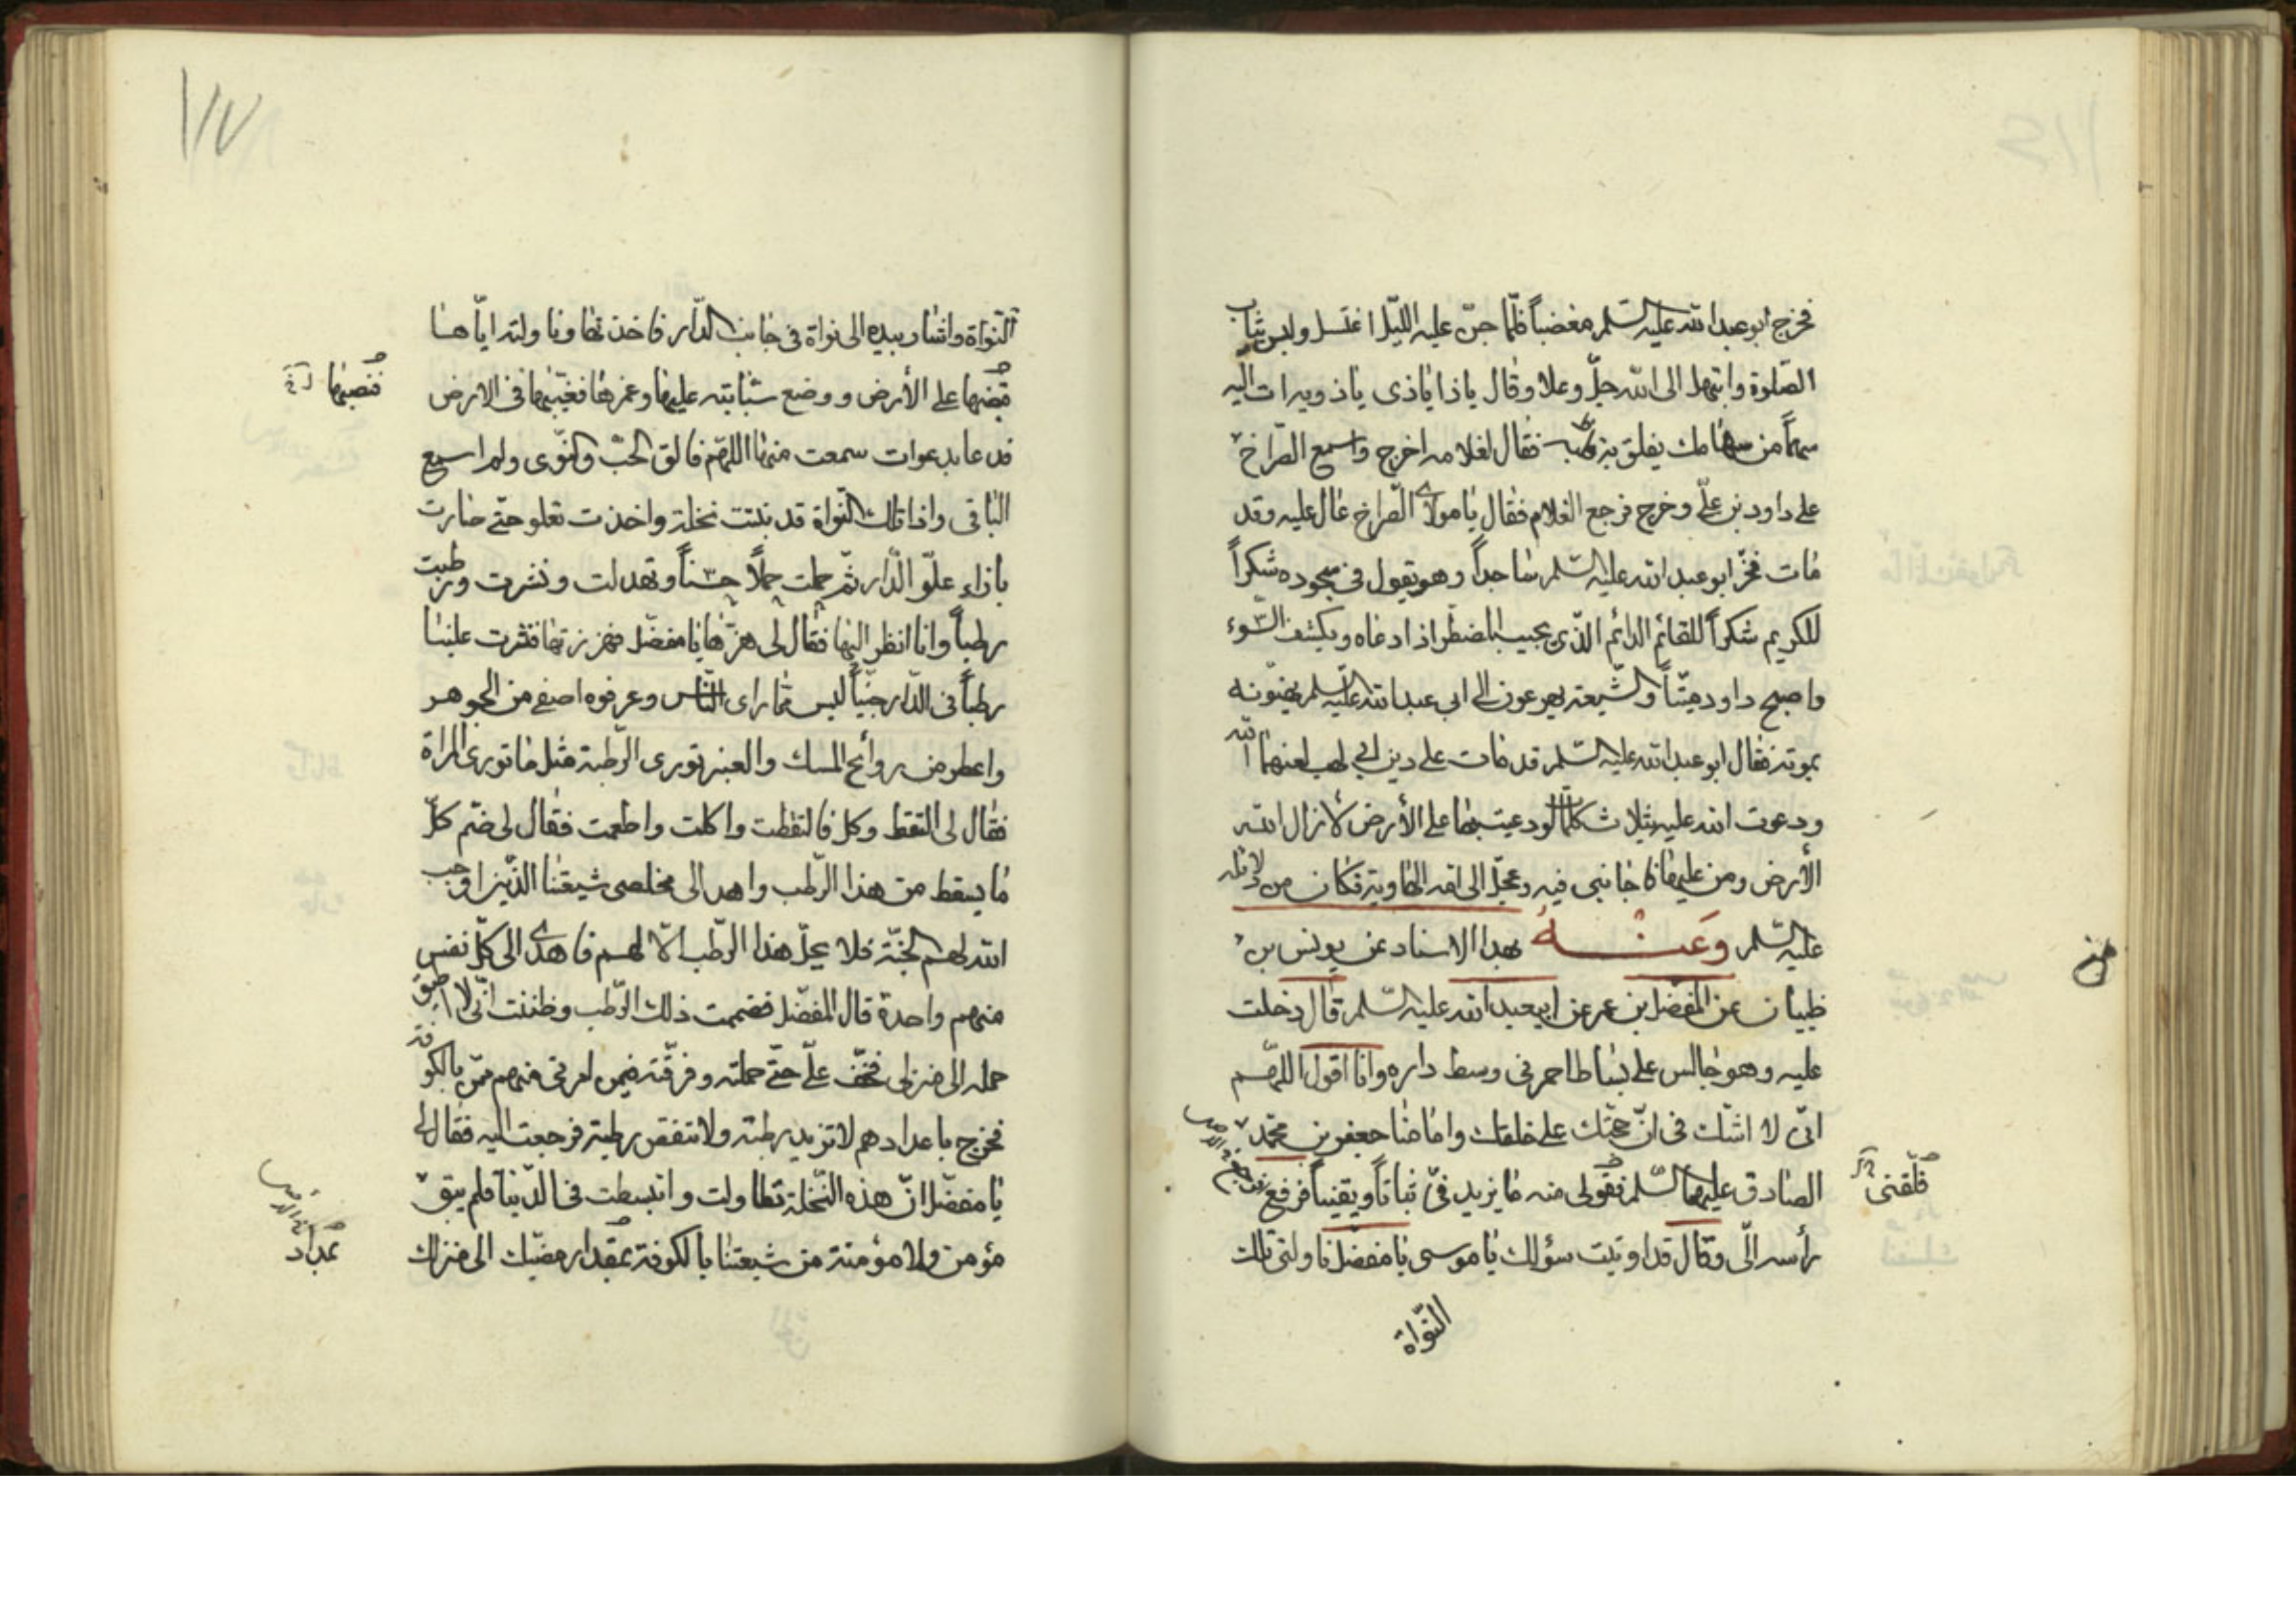 فخرج ابو عبد الله عليه السّلم مغضباً فلمّا جنّ عليه اللّيل اغتسل ولبس ثياب
الصّلوة وابتهل الى الله جلّ وعلا وقال ياذا ياذى ياذويه ات اليه
سهماً من سهامك يفلق به قلبه فقال لغلامه اخرج واسمع الصّراخ
على داود بن علّى وخرج فرجع الغلام فقال يا مولاى الصّراخ عال عليه وقد
مات فخرّ ابو عبد الله عليه السّلم ساجداً وهو يقول فى سجوده شكراً
للكريم شكراً للقائم الدائم الّذى يجيب المضطر اذا دعاه ويكشف السّوء
واصبح داود ميّتاً والشّيعة يهرعون الى ابى عبد الله عليه السّلم يهنّونه
بموته فقال ابو عبد الله عليه السّلم قد مات على دين ابى لهب لعنهما الله
ودعوت الله عليه بثلاث كلمات لودعيت بها على الأرض لأزال الله
الأرض ومن عليها فاجابنى فيه وعجّل الى امه الهاوية فكان من دلائله
عليه السّلم وعنه بهذا الاسناد عن يونس بن
ظبيان عن المفضل بن عمر عن ابيعبد الله عليه السّلم قال دخلت
عليه وهو جالس على بساط احمر فى وسط داره وانا اقول اللّهم
انّى لا اشّك فى انّ حجّتك على خلقك وامامنا جعفر بن محمّد
الصادق عليهما السّلم فقولى منه ما يزيد فىّ ثباتاً ويقيناً فرفع
فلّقنى
رأسه الّى وقال قد اوتيت سؤلك يا موسى يا مفضّل ناولنى تلك
النّواة
١١٧
النّواة واشار بيده الى نواة فى جانب الدّار فاخذتها وناولته ايّاها
قبضها على الأرض ووضع سبّابته عليها وغمزها فغيّبها فى الارض
فنصبها
فدعا بدعوات سمعت منها اللهّم فالق الحبّ والنّوى ولم اسمع
الباقى واذا تلك النّواة قد نبتت نخلة واخذت تعلو حتّى صارت
بازاء علّو الدّار ثمّ حملت حملاً حسناً وتهدلت ونشرت ورطبت
رطباً وانا انظر اليها فقال لى هزّها يا مفضّل فهززتها فنثرت علينا
رطباً فى الدّار جنيّاً ليس ممّا راى النّاس وعرفوه اصفى من الجوهر
واعطر من روائح المسك والعنبر تورى الرّطبة مثل ما تورى المراة
فقال لى التقط وكل فالتقطت واكلت واطعمت فقال لى ضّم كلّ
ما يسقط من هذا الرّطب واهد الى مخلصى شيعتنا الذّين اوجب
الله لهم الجنّة فلا يحلّ هذا الرّطب الّا لهم فاهدى الى كلّ نفس
منهم واحدة قال المفضّل فضممت ذلك الرّطب وظننت انّى لا اطيق
حمله الى منزلى فخّف علّى حتّى حملته وفرّقته فيمن امرنى منهم ممّن بالكوفة
فخرج باعدادهم لا تزيد رطبة ولا تنقص رطبة فرجعت اليه فقال لى
يا مفضّل انّ هذه النّخلة تطاولت وانبسطت فى الدّنيا فلم يبق
مؤمن ولا مؤمنة من شيعتنا بالكوفة بمقدار مضيّك الى منزلك